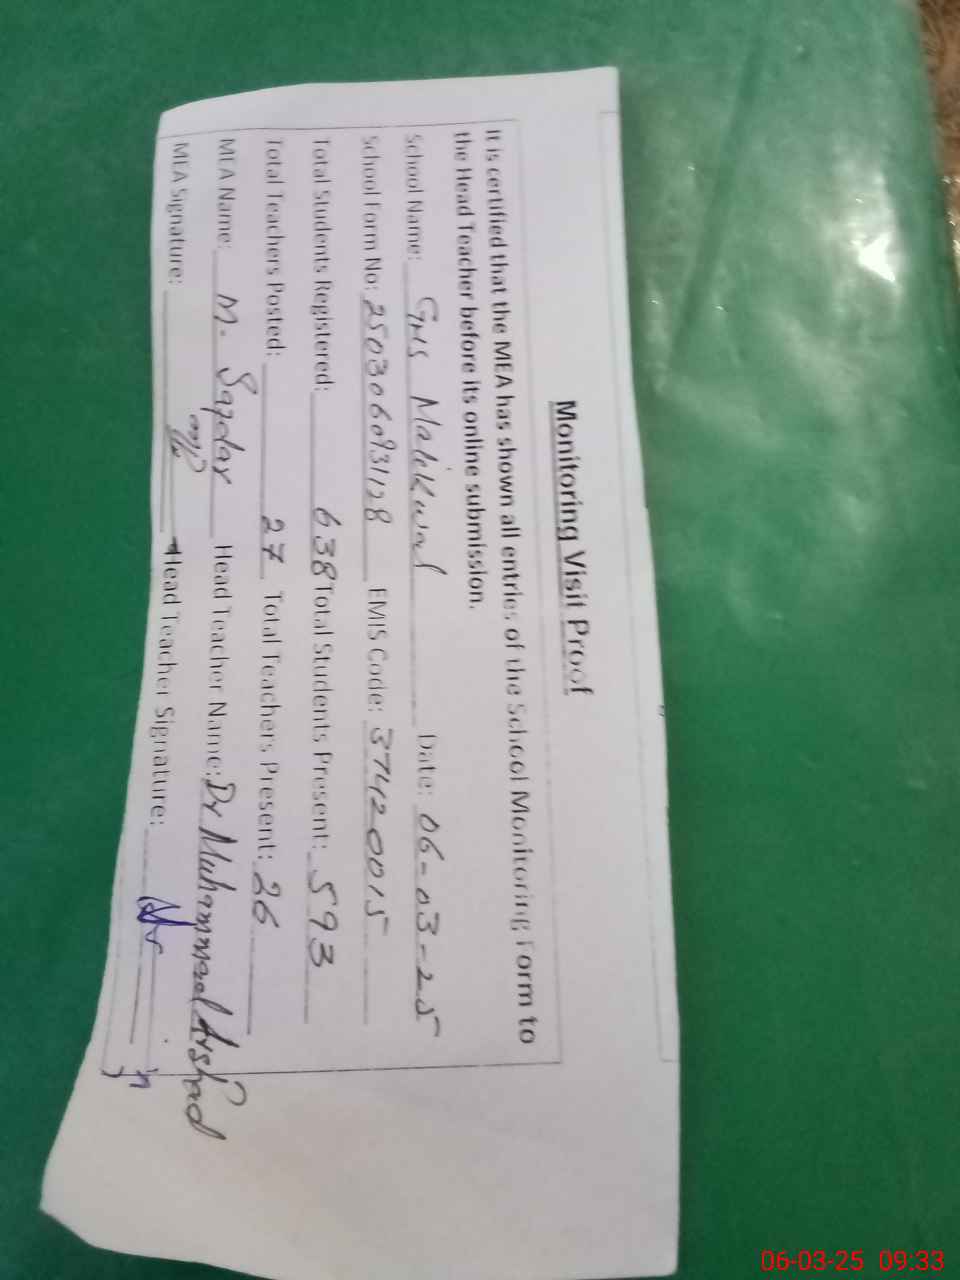 Monitoring Visit Proof
It is certified that the MEA has shown all entries of the School Monitoring Form to
the Head Teacher before its online submission.
School Name: GHS Malakwal Date: 06-03-25
School Form No: 250306093128 EMIS Code: 37420015
Total Students Registered: 638 Total Students Present: 593
Total Teachers Posted: 27 Total Teachers Present: 26
MEA Name: M. Safdar Head Teacher Name: Dr Muhammad Arshad
MEA Signature: Head Teacher Signature:
06-03-25 09:33